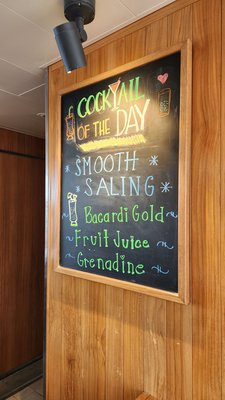 COCKTAIL
OF THE DAY
SMOOTH
SALING
Bacardi Gold
Fruit Juice
Grenadine